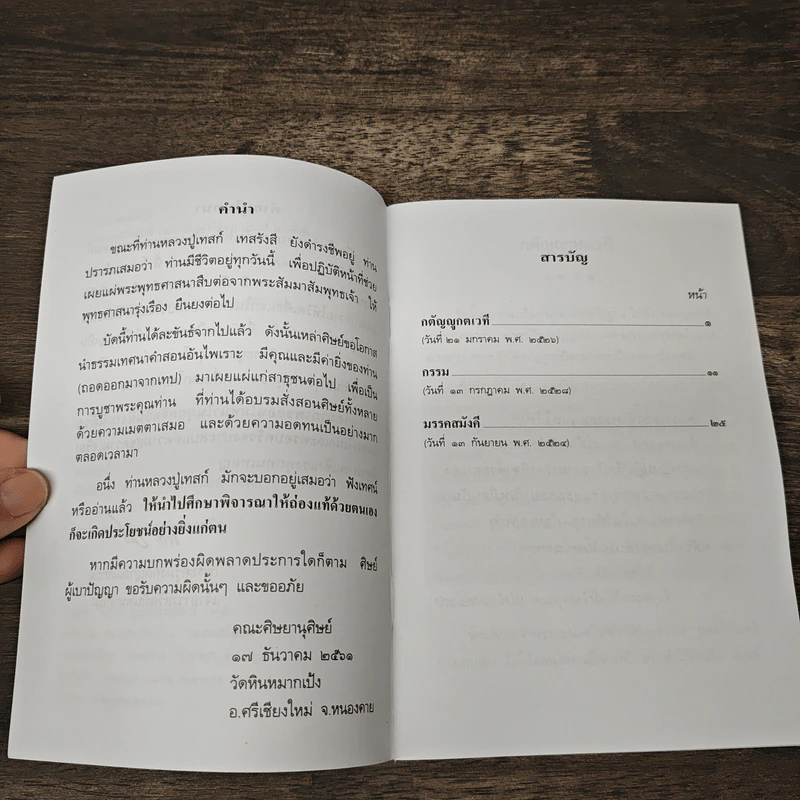 คำนำ
ขณะที่ท่านหลวงปู่เทสก์ เทสรังสี ยังดำรงชีพอยู่ ท่าน
ปรารภเสมอว่า ท่านมีชีวิตอยู่ทุกวันนี้ เพื่อปฏิบัติหน้าที่ช่วย
เผยแผ่พระพุทธศาสนาสืบต่อจากพระสัมมาสัมพุทธเจ้า ให้
พุทธศาสนารุ่งเรือง ยืนยงต่อไป
บัดนี้ท่านได้ละขันธ์จากไปแล้ว ดังนั้นเหล่าศิษย์ขอโอกาส
นำธรรมเทศนาคำสอนอันไพเราะ มีคุณและมีค่ายิ่งของท่าน
(ถอดออกมาจากเทป) มาเผยแผ่แก่สาธุชนต่อไป เพื่อเป็น
การบูชาพระคุณท่าน ที่ท่านได้อบรมสั่งสอนศิษย์ทั้งหลาย
ด้วยความเมตตาเสมอ และด้วยความอดทนเป็นอย่างมาก
ตลอดเวลามา
อนึ่ง ท่านหลวงปู่เทสก์ มักจะบอกอยู่เสมอว่า ฟังเทศน์
หรืออ่านแล้ว ให้นำไปศึกษาพิจารณาให้ถ่องแท้ด้วยตนเอง
ก็จะเกิดประโยชน์อย่างยิ่งแก่ตน
หากมีความบกพร่องผิดพลาดประการใดก็ตาม ศิษย์
ผู้เบาปัญญา ขอรับความผิดนั้นๆ และขออภัย
คณะศิษยานุศิษย์
๑๗ ธันวาคม ๒๕๖๑
วัดหินหมากเป้ง
อ.ศรีเชียงใหม่ จ.หนองคาย
สารบัญ
หน้า
กตัญญูกตเวที ๑
(วันที่ ๒๑ มกราคม พ.ศ. ๒๕๒๖)
กรรม ๑๑
(วันที่ ๑๓ กรกฎาคม พ.ศ. ๒๕๒๘)
มรรคสมังคี ๒๕
(วันที่ ๑๓ กันยายน พ.ศ. ๒๕๒๔)